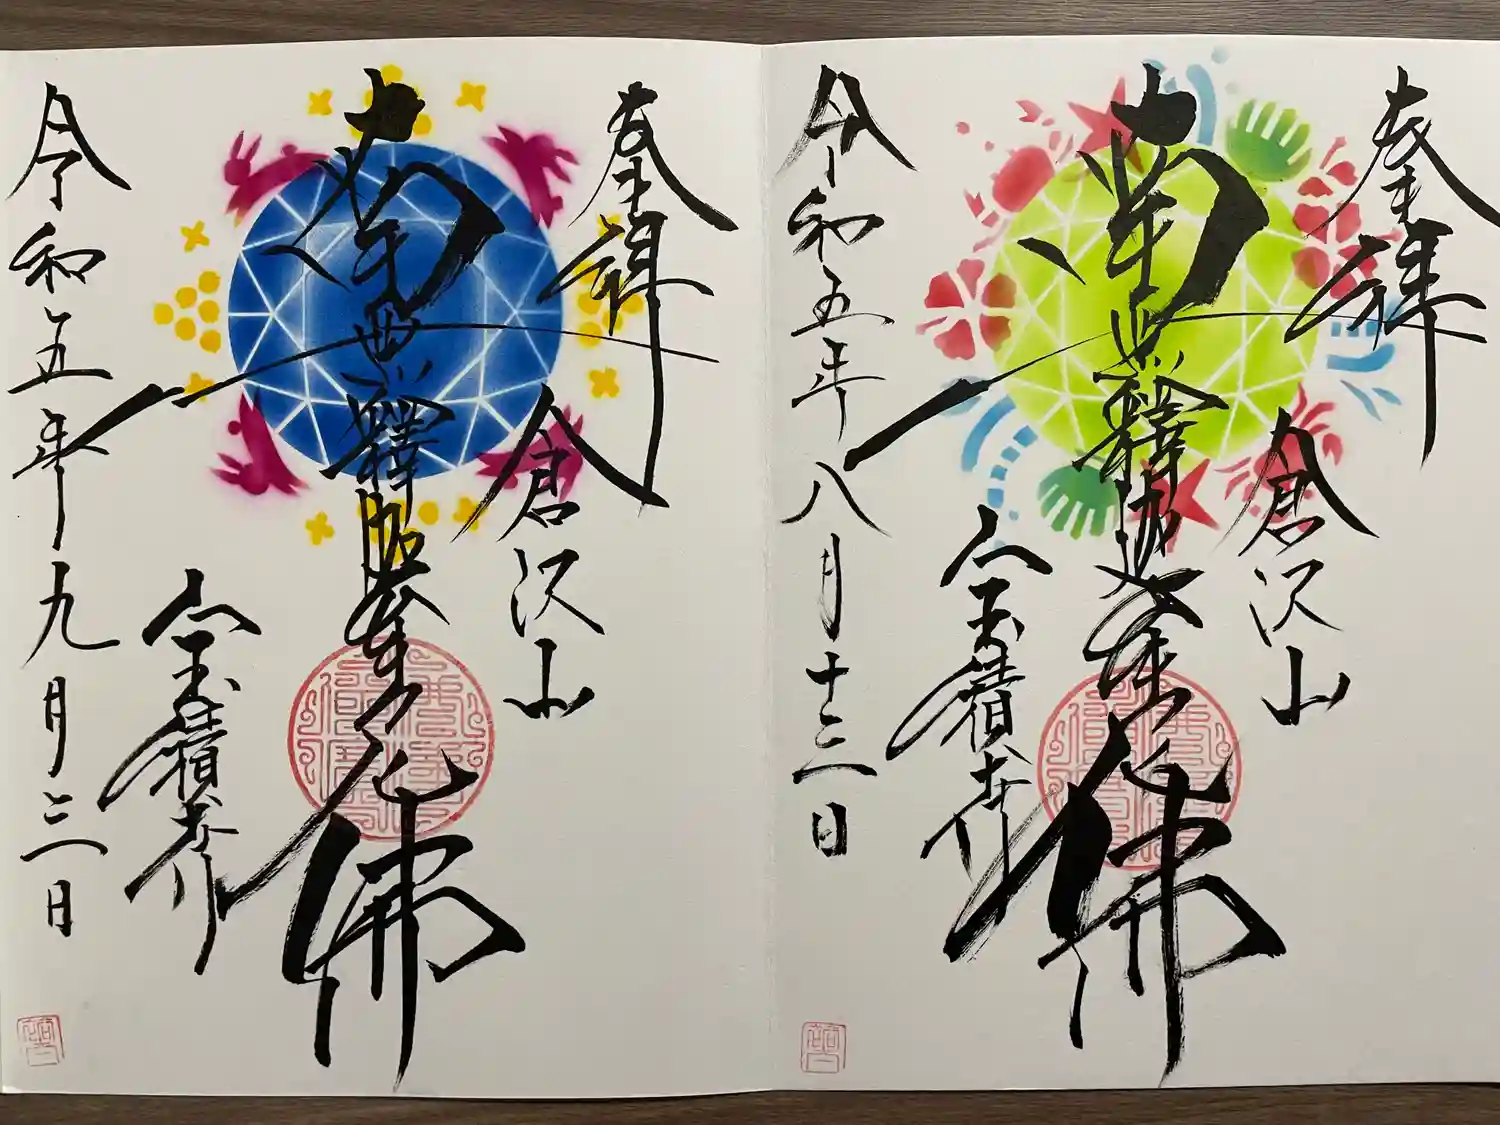 奉拝
倉沢山
南無釋迦牟尼佛
宝積寺
令和五年八月十三日
奉拝
倉沢山
南無釋迦牟尼佛
宝積寺
令和五年九月三日